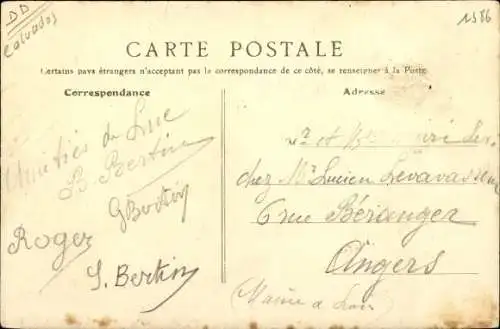 DD
Calvados
1586
CARTE POSTALE
Certains pays étrangers n'acceptant pas la correspondance de ce côté, se renseigner à la Poste
Correspondance
Adresse
Amitiés de Luc
B. Bertin
G Bertin
Roger
S. Bertin
et
chez Mr Lucien Levavasseur
6 rue Béranger
Angers
(Maine & Loire)